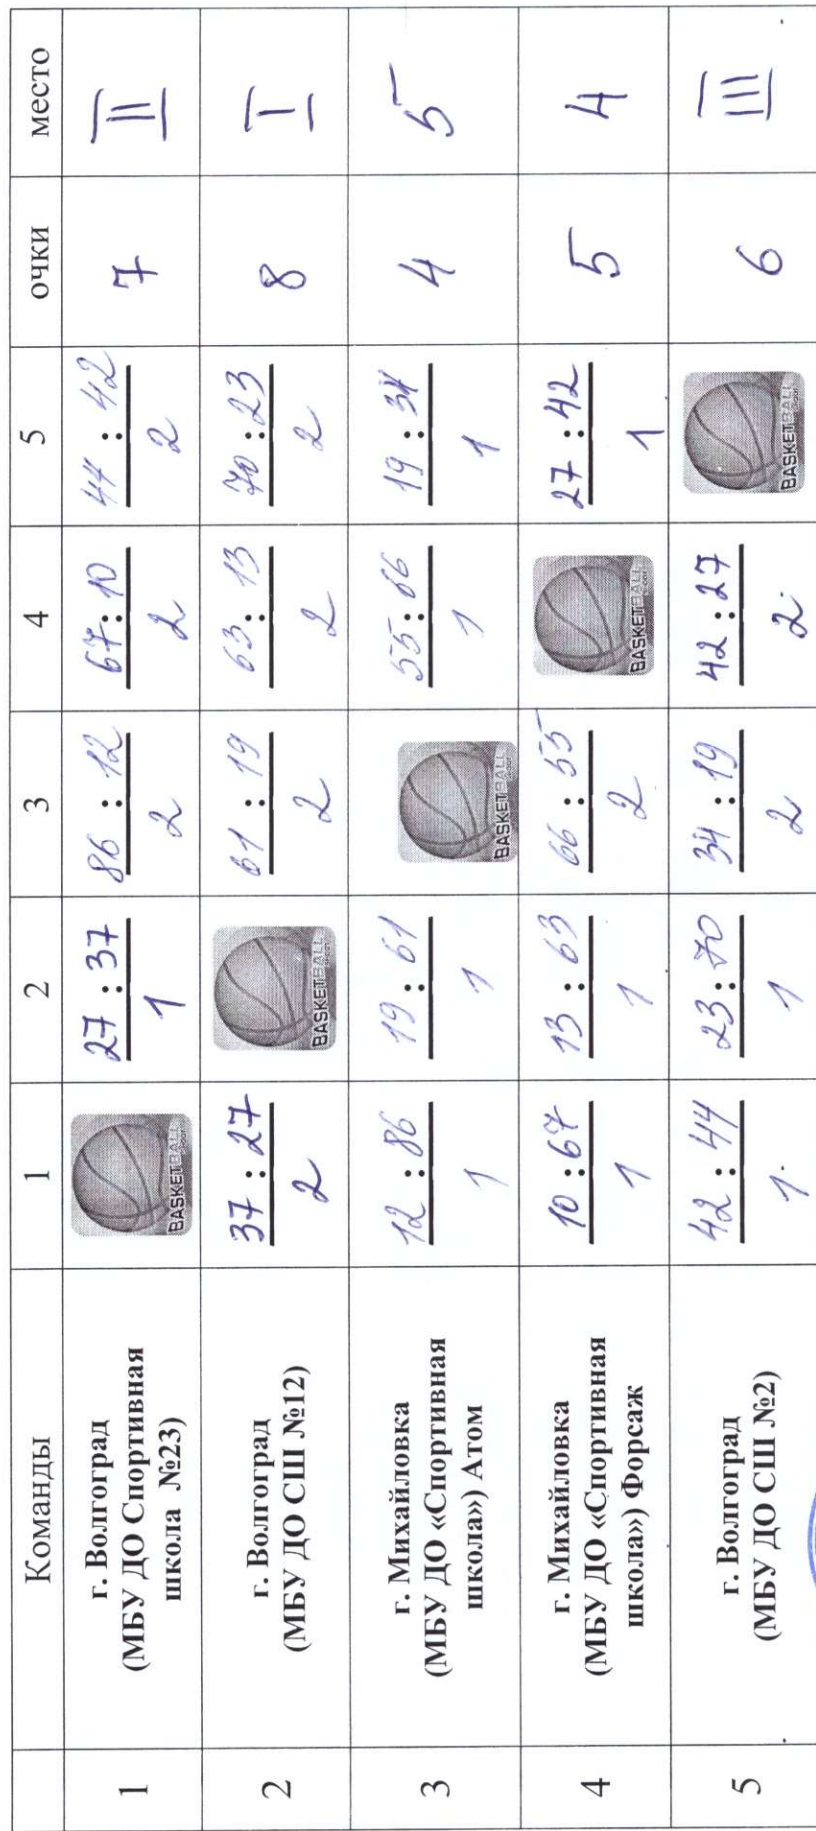 Команды 1 2 3 4 5 очки место
1 г. Волгоград (МБУ ДО Спортивная школа №23) BASKETBALL 27 : 37 1 86 : 12 2 67 : 10 2 44 : 42 2 7 II
2 г. Волгоград (МБУ ДО СШ №12) 37 : 27 2 BASKETBALL 61 : 19 2 63 : 13 2 70 : 23 2 8 I
3 г. Михайловка (МБУ ДО «Спортивная школа») Атом 12 : 86 1 19 : 61 1 BASKETBALL 55 : 66 1 19 : 34 1 4 5
4 г. Михайловка (МБУ ДО «Спортивная школа») Форсаж 10 : 67 1 13 : 63 1 66 : 55 2 BASKETBALL 27 : 42 1 5 4
5 г. Волгоград (МБУ ДО СШ №2) 42 : 44 1. 23 : 70 1 34 : 19 2 42 : 27 2. BASKETBALL 6 III